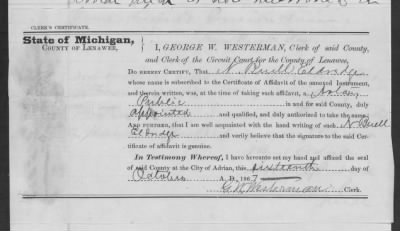 CLERK'S CERTIFICATE.
State of Michigan,
COUNTY OF LENAWEE.
I, GEORGE W. WESTERMAN, Clerk of said County,
and Clerk of the Circuit Court for the County of Lenawee,
DO HEREBY CERTIFY, THAT N. Buell Eldredge
whose name is subscribed to the Certificate of Affidavit of the annexed Instrument,
and therein written, was, at the time of taking such affidavit, a Notary
Public in and for said County, duly
appointed and qualified, and duly authorized to take the same.
AND FURTHER, that I am well acquainted with the hand writing of such N Buell
Eldredge and verily believe that the signature to the said Certificate
of affidavit is genuine.
In Testimony Whereof, I have hereunto set my hand and affixed the seal
of said County at the City of Adrian, this day of
October A. D. 1867
G. W. Westerman Clerk.